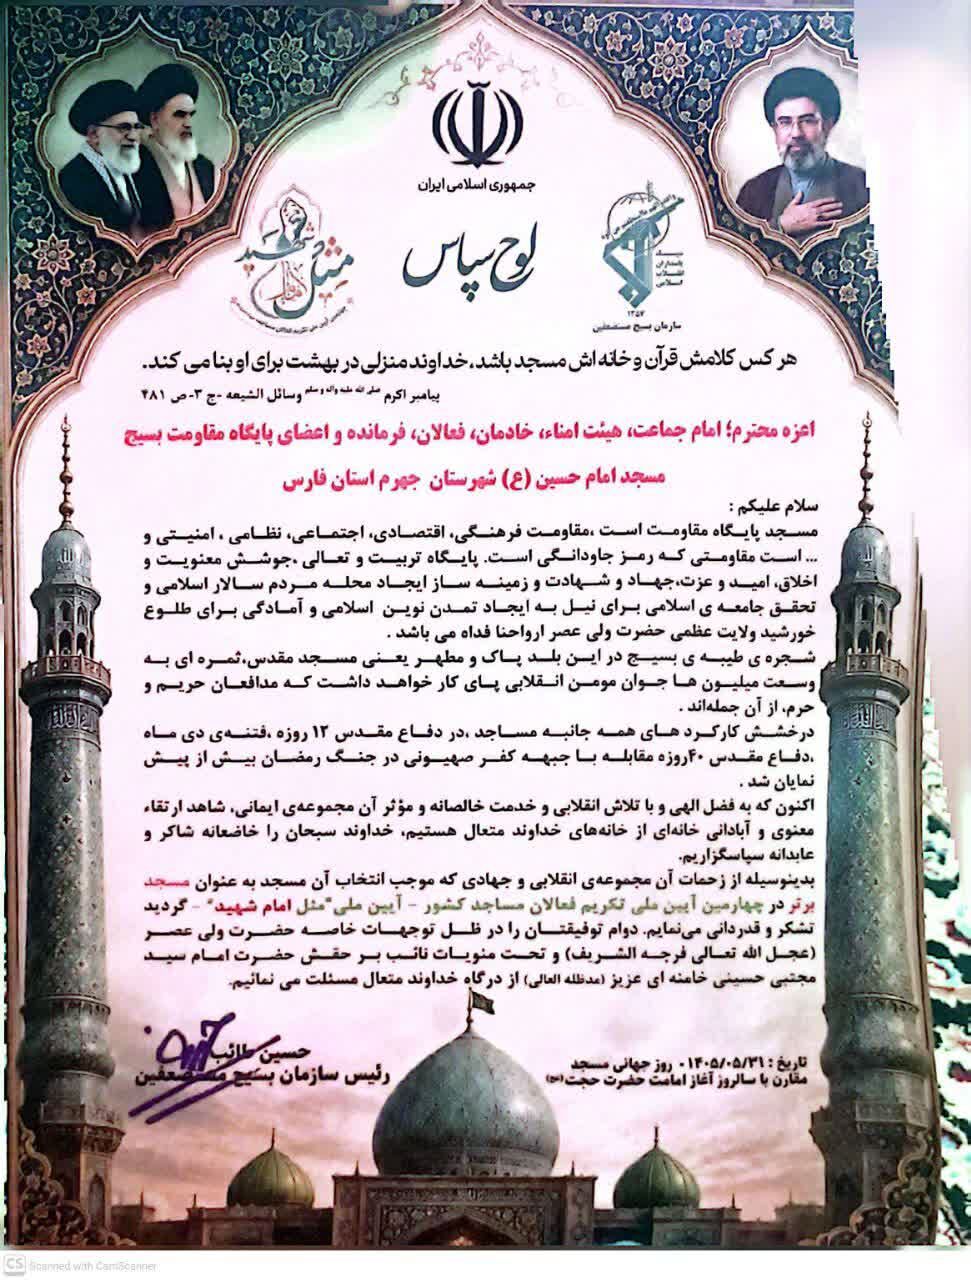 جمهوری اسلامی ایران
لوح سپاس
مثل امام شهید
سپاه پاسداران انقلاب اسلامی
۱۳۵۷
سازمان بسیج مستضعفین
هر کس کلامش قرآن و خانه اش مسجد باشد، خداوند منزلی در بهشت برای او بنا می کند.
پیامبر اکرم صلی الله علیه وآله وسلم وسائل الشیعه -ج ۳- ص ۴۸۱
اعزه محترم؛ امام جماعت، هیئت امناء، خادمان، فعالان، فرمانده و اعضای پایگاه مقاومت بسیج
مسجد امام حسین (ع) شهرستان جهرم استان فارس
سلام علیکم :
مسجد پایگاه مقاومت است ،مقاومت فرهنگی، اقتصادی، اجتماعی، نظامی ، امنیتی و
... است مقاومتی که رمز جاودانگی است. پایگاه تربیت و تعالی ،جوشش معنویت و
اخلاق، امید و عزت،جهاد و شهادت و زمینه ساز ایجاد محله مردم سالار اسلامی و
تحقق جامعه ی اسلامی برای نیل به ایجاد تمدن نوین اسلامی و آمادگی برای طلوع
خورشید ولایت عظمی حضرت ولی عصر ارواحنا فداه می باشد .
شجره ی طیبه ی بسیج در این بلد پاک و مطهر یعنی مسجد مقدس،ثمره ای به
وسعت میلیون ها جوان مومن انقلابی پای کار خواهد داشت که مدافعان حریم و
حرم، از آن جمله‌اند .
درخشش کارکرد های همه جانبه مساجد ،در دفاع مقدس ۱۲ روزه ،فتنه‌ی دی ماه
،دفاع مقدس ۴۰روزه مقابله با جبهه کفر صهیونی در جنگ رمضان بیش از پیش
نمایان شد .
اکنون که به فضل الهی و با تلاش انقلابی و خدمت خالصانه و مؤثر آن مجموعه‌ی ایمانی، شاهد ارتقاء
معنوی و آبادانی خانه‌ای از خانه‌های خداوند متعال هستیم، خداوند سبحان را خاضعانه شاکر و
عابدانه سپاسگزاریم.
بدینوسیله از زحمات آن مجموعه‌ی انقلابی و جهادی که موجب انتخاب آن مسجد به عنوان مسجد
برتر در چهارمین آیین ملی تکریم فعالان مساجد کشور - آیین ملی "مثل امام شهید" - گردید
تشکر و قدردانی می‌نمایم. دوام توفیقتان را در ظل توجهات خاصه حضرت ولی عصر
(عجل الله تعالی فرجه الشریف) و تحت منویات نائب بر حقش حضرت امام سید
مجتبی حسینی خامنه ای عزیز (مدظله العالی) از درگاه خداوند متعال مسئلت می نمائیم.
حسین طائب
رئیس سازمان بسیج مستضعفین
تاریخ : ۱۴۰۵/۰۵/۳۱ روز جهانی مسجد
مقارن با سالروز آغاز امامت حضرت حجت(عج)
CS Scanned with CamScanner